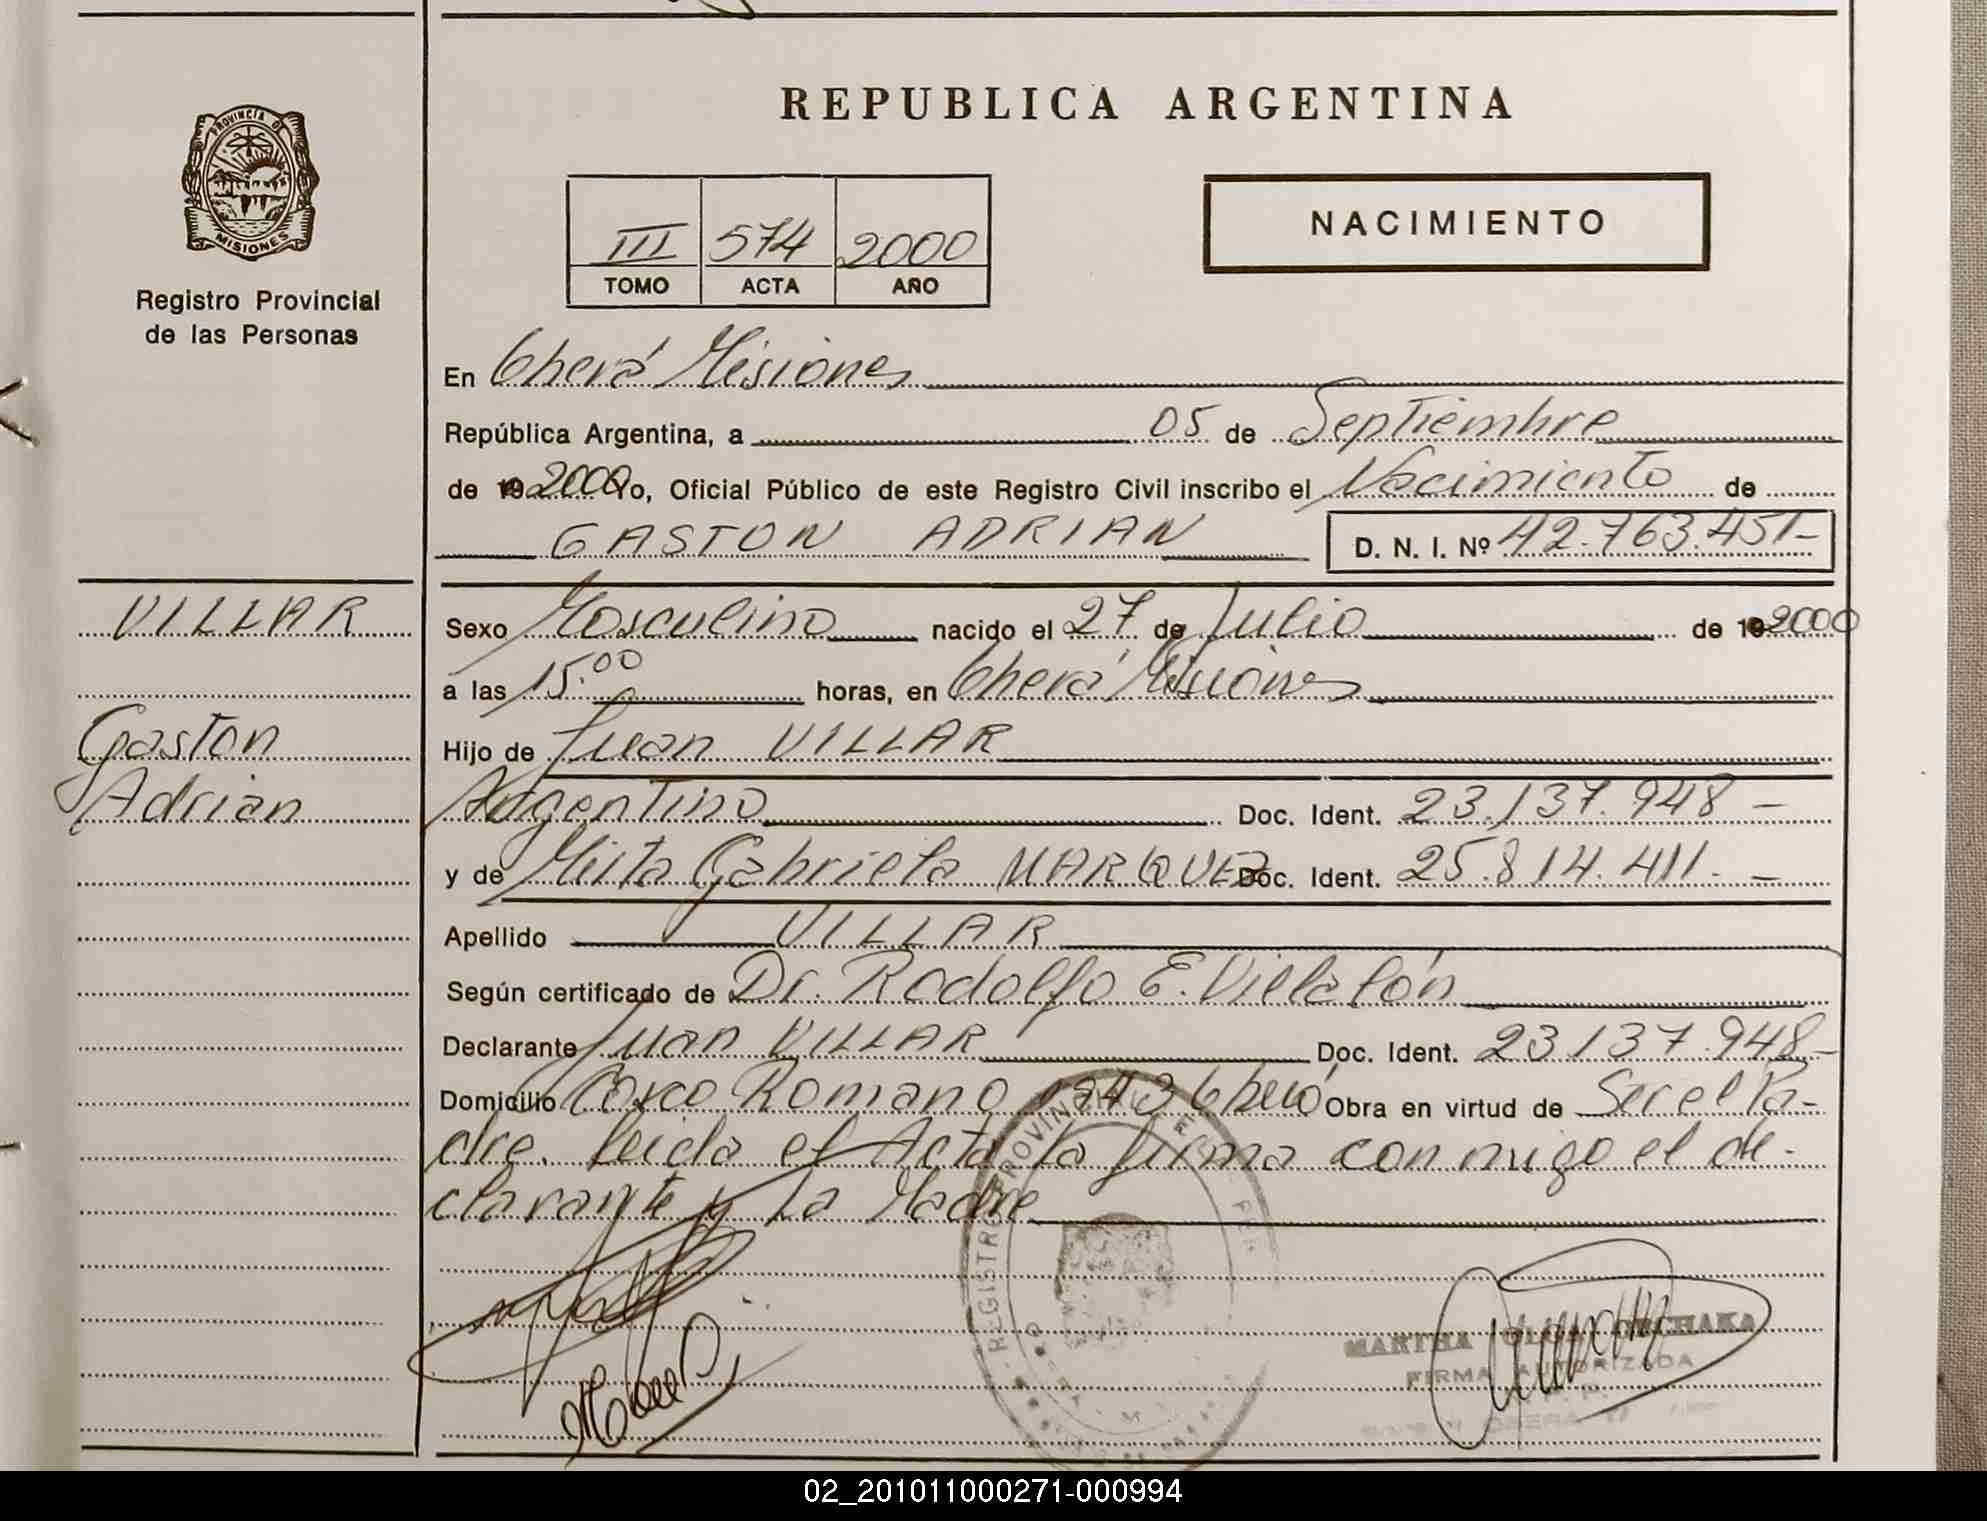 REPUBLICA ARGENTINA
PROVINCIA DE
MISIONES
Registro Provincial
de las Personas
III 574 2000
TOMO ACTA AÑO
NACIMIENTO
En Oberá Misiones
República Argentina, a 05 de Septiembre
de 19 2000 Yo, Oficial Público de este Registro Civil inscribo el Nacimiento de
GASTON ADRIAN D. N. I. Nº 42.763.451-
VILLAR
Gaston
Adrian
Sexo Masculino nacido el 27 de Julio de 19 2000
a las 15.00 horas, en Oberá Misiones
Hijo de Juan VILLAR
Argentino Doc. Ident. 23.137.948 -
y de Mirta Gabriela MARQUEZ Doc. Ident. 25.814.411. -
Apellido VILLAR
Según certificado de Dr. Rodolfo E. Villalón
Declarante Juan VILLAR Doc. Ident. 23.137.948-
Domicilio Romano Oberá Obra en virtud de Ser el Pa-
dre. leida el Acta la firma con migo el de-
clarante y La Madre
REGISTRO PROVINCIAL
MARTHA OLGA
FIRMA AUTORIZADA
OBERA
02_201011000271-000994